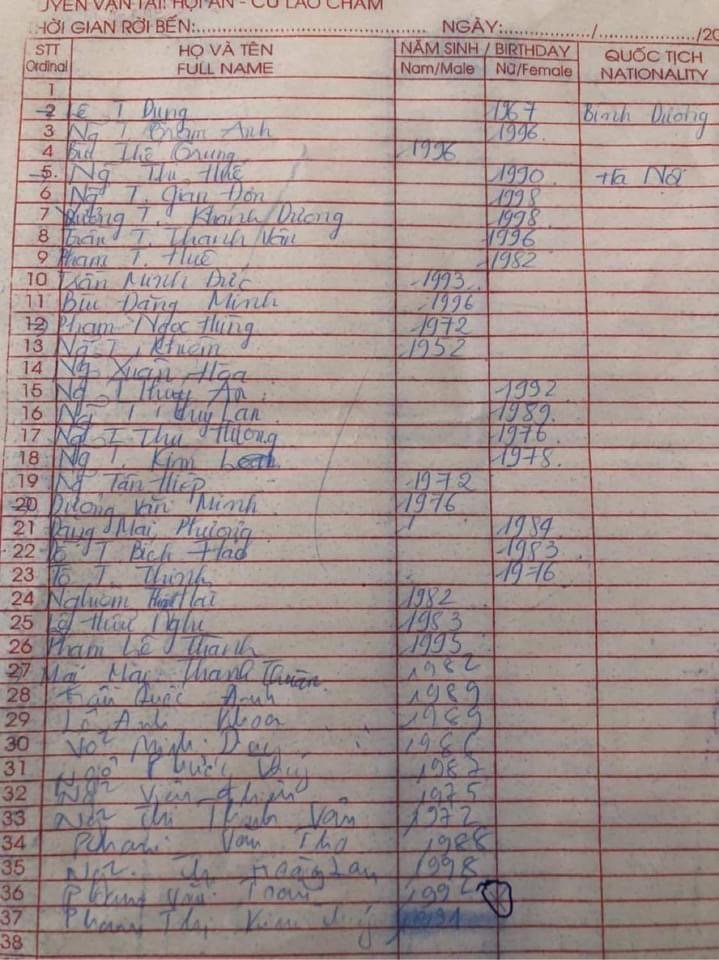 TUYẾN VẬN TẢI: HỘI AN - CÙ LAO CHÀM
THỜI GIAN RỜI BẾN: NGÀY: / /20
STT Ordinal HỌ VÀ TÊN FULL NAME NĂM SINH / BIRTHDAY Nam/Male Nữ/Female QUỐC TỊCH NATIONALITY
1
2 Lê T Dung 1967 Bình Dương
3 Ng T. Trâm Anh 1996
4 Bùi Thế Trung 1996
5. Ng Thị Huế 1990 Hà Nội
6 Ng T. Gian Đơn 1998
7 T. Khánh Dương 1998
8 Trần T. Thanh Vân 1996
9 Phạm T. Huê 1982
10 Trần Minh Đức 1993
11 Bùi Đăng Minh 1996
12 Phạm Ngọc Hùng 1972
13 Ng T. 1952
14 Ng Xuân Hòa
15 Ng T Thuý An 1992
16 Lan 1989
17 Ng T Thu Hương 1976
18 Ng T. Kim 1978
19 Ng Tấn Hiệp 1972
20 Dương Văn Minh 1976
21 Đặng Mai Phương 1984
22 Tô T Bích Hảo 1983
23 Tô T. Thịnh 1976
24 Nghiêm Hải 1982
25 Lê Hữu Nghị 1983
26 Phạm Lê Thanh 1995
27 Mai Thanh 1982
28 Trần Quốc Anh 1989
29 Lê Anh Khoa 1989
30 Võ Minh Duy
31 Ngô Phước 1987
32 1975
33 Thị Vân 1972
34 Phạm Văn Thọ 1988
35 Lan 1998
36 Văn Toàn
37 Phạm Thị Kim
38